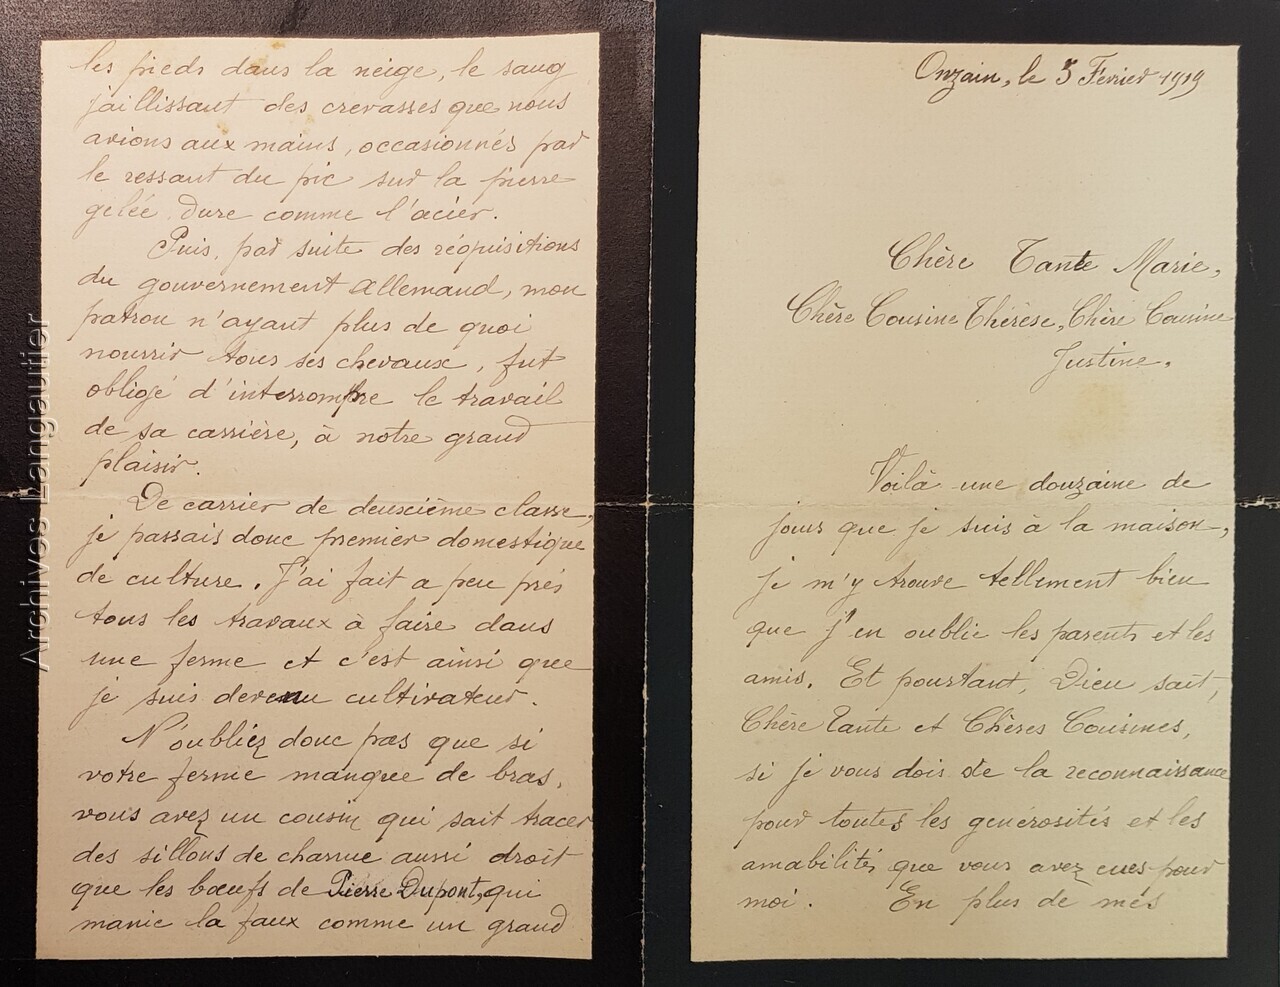 les pieds dans la neige, le sang
jaillissant des crevasses que nous
avions aux mains, occasionnés par
le ressaut du pic sur la pierre
gelée. Dure comme l'acier.
Puis, par suite des réquisitions
du gouvernement allemand, mon
patron n'ayant plus de quoi
nourrir tous ses chevaux, fut
obligé d'interrompre le travail
de sa carrière, à notre grand
plaisir.
De carrier de deuxième classe,
je passais donc premier domestique
de culture. J'ai fait a peu près
tous les travaux à faire dans
une ferme et c'est ainsi que
je suis devenu cultivateur.
N'oubliez donc pas que si
votre ferme manque de bras,
vous avez un cousin qui sait tracer
des sillons de charrue aussi droit
que les bœufs de Pierre Dupont, qui
manie la faux comme un grand
Onzain, le 5 Février 1919
Chère Tante Marie,
Chère Cousine Thérèse, Chère Cousine
Justine,
Voilà une douzaine de
jours que je suis à la maison,
je m'y trouve tellement bien
que j'en oublie les parents et les
amis. Et pourtant, Dieu sait,
Chère Tante et Chères Cousines,
si je vous dois de la reconnaissance
pour toutes les générosités et les
amabilités que vous avez eues pour
moi. En plus de més
Archives Langautier